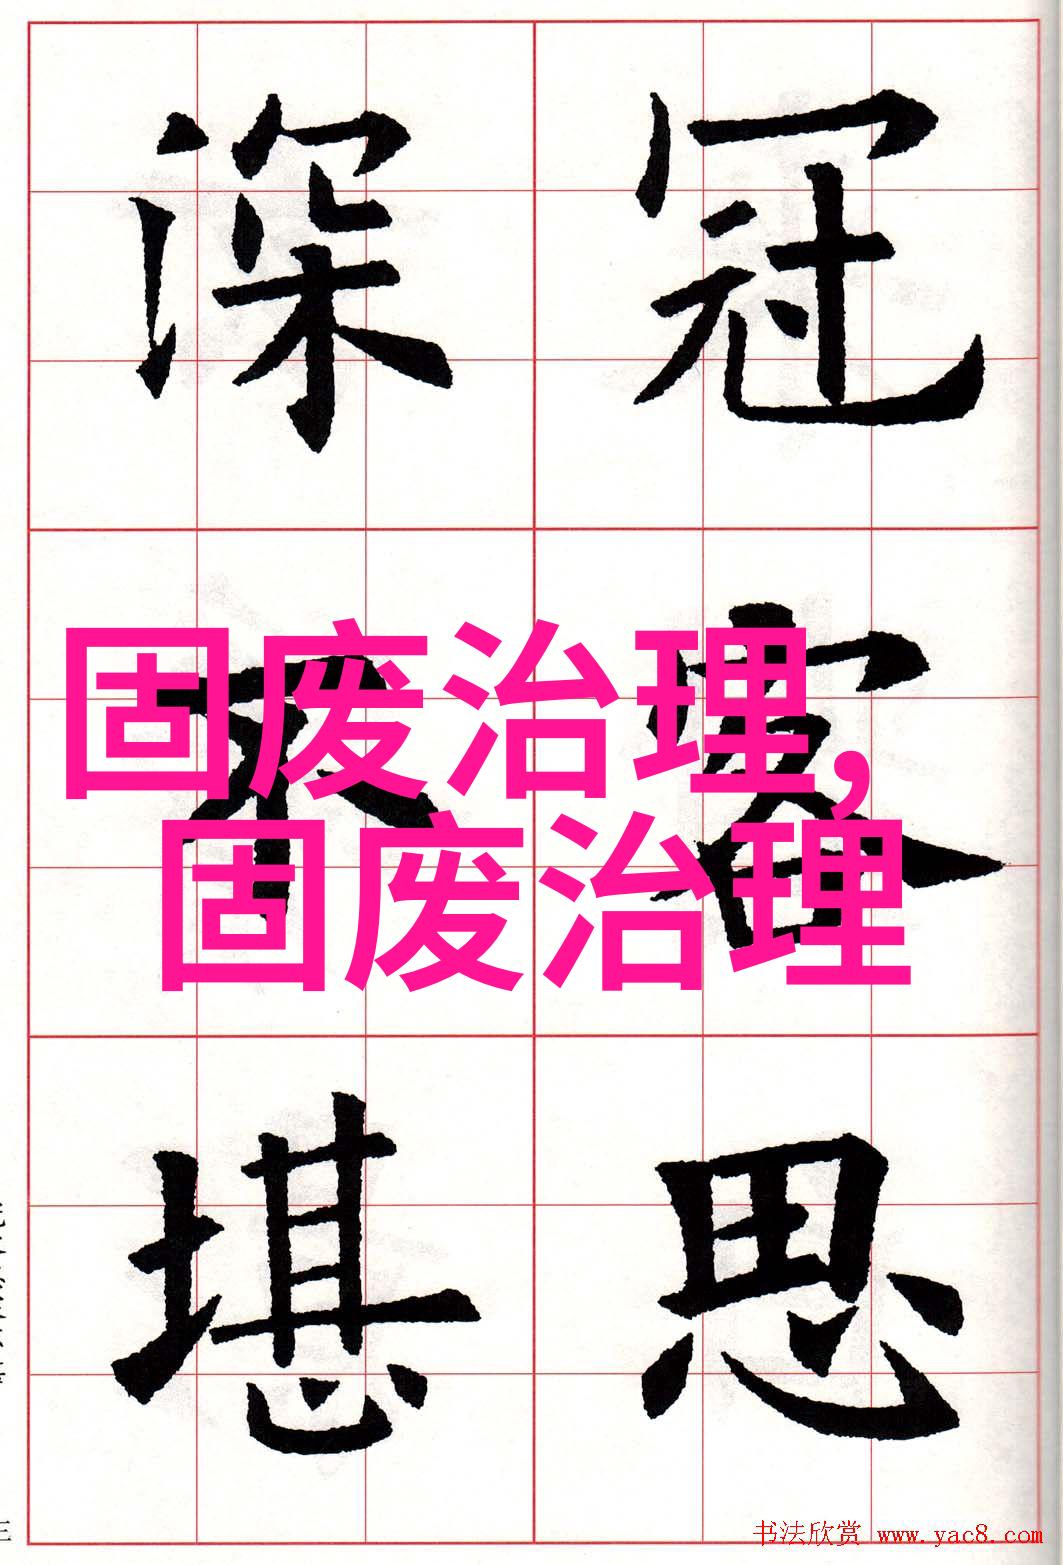 冠客思
深不堪
固废治理,
固废治理
书法欣赏 www.yac8.com